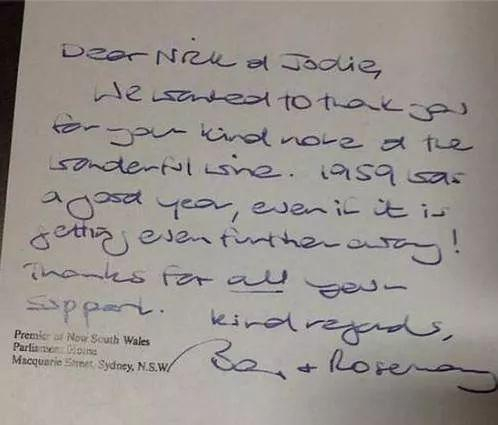 Dear Nick & Jodie,
We wanted to thank you
for your kind note & the
wonderful wine. 1959 was
a good year, even if it is
getting even further away!
Thanks for all your
support.
Kind regards,
Premier of New South Wales
Parliament House
Macquarie Street, Sydney, N.S.W
Barry + Rosemary